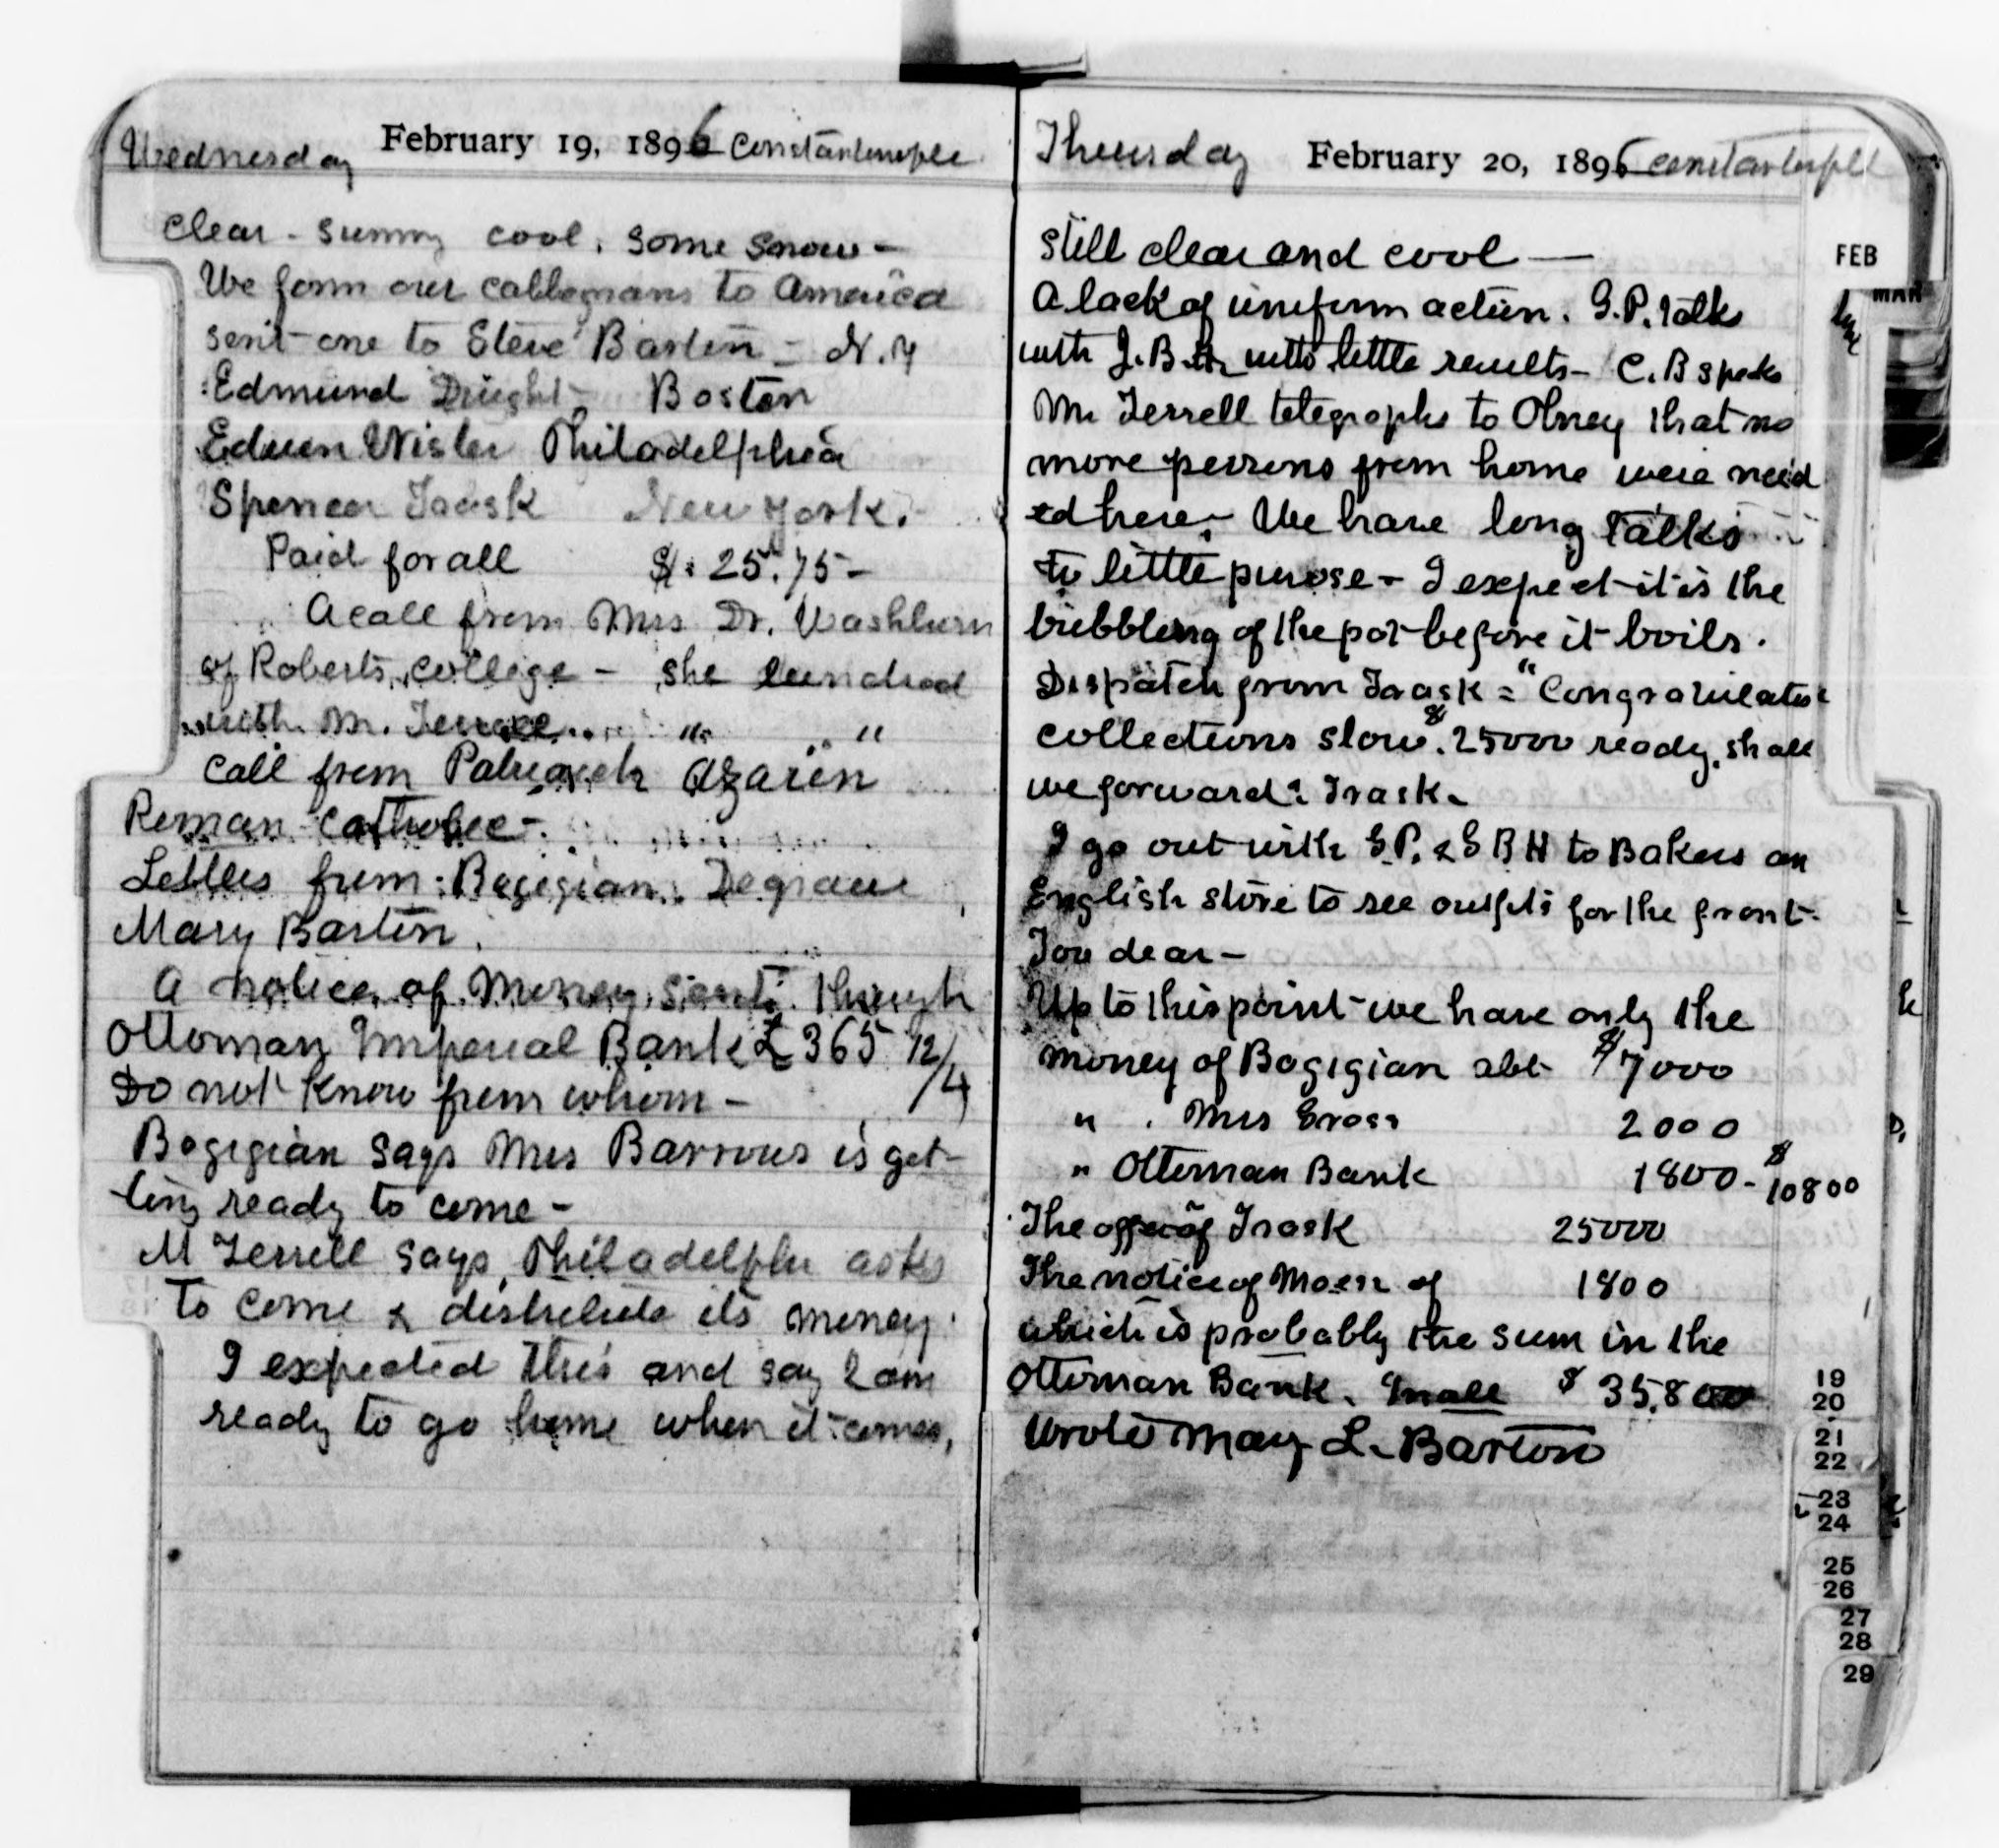 Wednesday February 19, 1896 Constantinople
Clear - sunny cool, some snow -
We form our cablegrams to America
sent one to Steve Barton - N.Y
Edmund Dwight - Boston
Edwin Wisler Philadelphia
Spencer Trask New York.
Paid for all $. 25.75 -
A call from Mrs Dr. Washburn
of Roberts college - she lunched
with Mr. Terrell " "
Call from Patriarch Azarin
Roman Catholic -
Letters from: Bogigian. Degraw
Mary Barton.
A notice of Money sent through
Ottoman Imperial Bank £ 365 12/4
Do not know from whom -
Bogigian says Mrs Barrows is get-
ting ready to come -
M Terrell says, Philadelphi asks
to come & distribute its money.
I expected this and say I am
ready to go home when it comes,
Thursday February 20, 1896 Constantinople
still clear and cool —
A lack of uniform action. G.P. talks
with J.B. with little results - C.B speaks
Mr Terrell telegraphs to Olney that no
more persons from home were need
ed here, - We have long talks
to little purose - I expect it is the
bubbling of the pot before it boils.
Dispatch from Trask = "Congratulates
collections slow. $25000 ready, shall
we forward? Trask.
I go out with G.P. & G B H to Bakers an
English store to see outfits for the front -
Too dear -
Up to this point we have only the
money of Bogigian abt $7000
" . Mrs Gross 2000
" Ottoman Bank 1800 - $10800
The offer of Trask 25000
The notice of Moen of 1800
which is probably the sum in the
Ottoman Bank. In all $ 35,800
Wrote Mary L. Barton
FEB
MAR
19
20
21
22
23
24
25
26
27
28
29